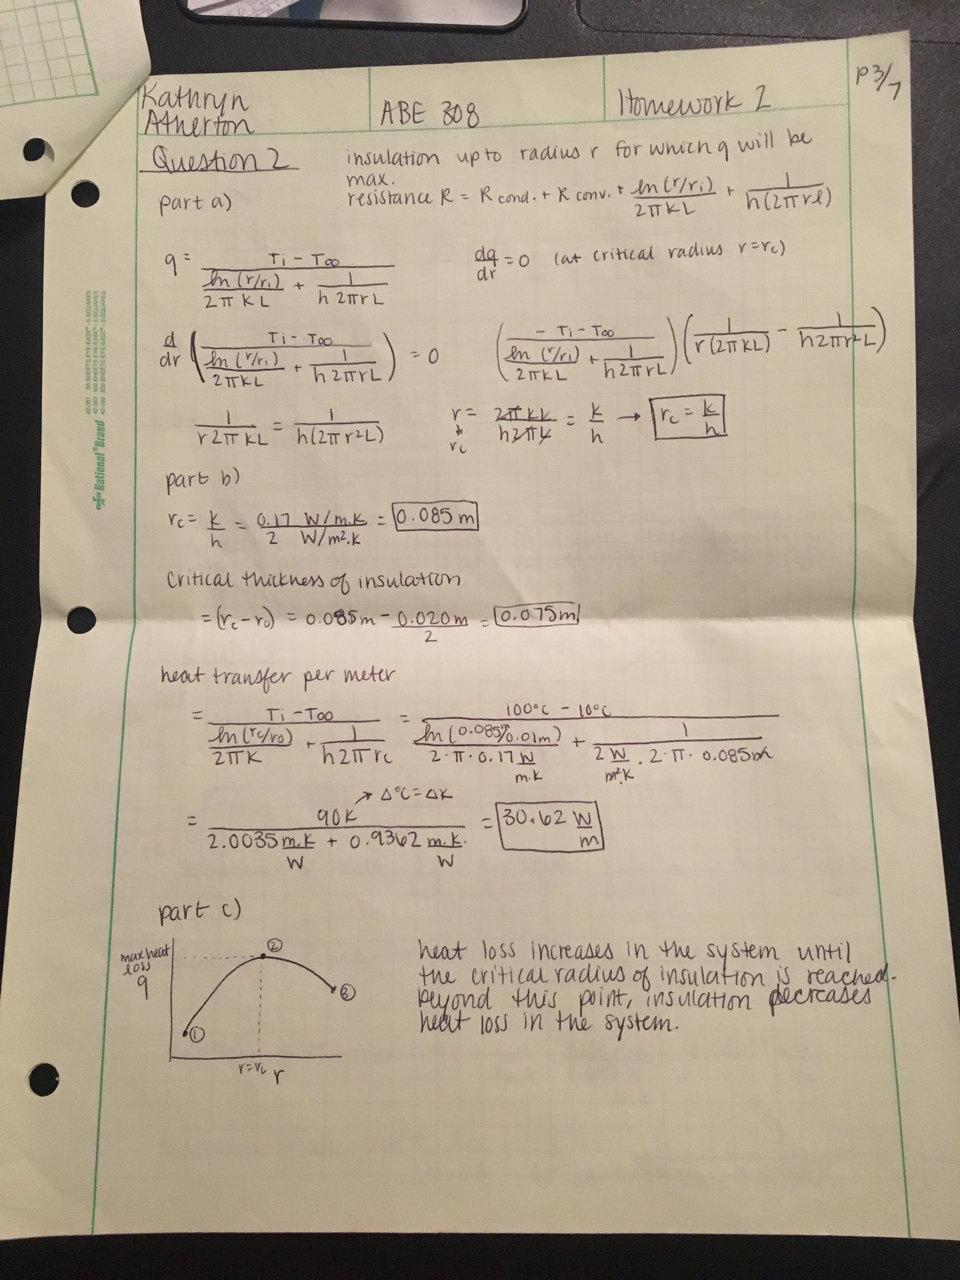 Kathryn Atherton
ABE 308
Homework 2
P 3/7
Question 2
insulation up to radius r for which q will be max.
part a)
resistance R = R cond. + R conv. + ln(r/ri)/2πKL + 1/h(2πrl)
q = Ti - T∞ / (ln(r/ri)/2πKL + 1/h2πrL)
dq/dr = 0 (at critical radius r=rc)
d/dr (Ti - T∞ / (ln(r/ri)/2πKL + 1/h2πrL)) = 0
(-Ti - T∞ / (ln(r/ri)/2πKL + 1/h2πrL)) (1/r(2πKL) - 1/h2πr²L)
1/r2πKL = 1/h(2πr²L)
r = 2πkL/h2πL = k/h → rc = k/h
↓
rc
part b)
rc = k/h = 0.17 W/m.K / 2 W/m².K = 0.085 m
Critical thickness of insulation
= (rc - ro) = 0.085m - 0.020m/2 = 0.075m
heat transfer per meter
= Ti - T∞ / (ln(rc/ro)/2πK + 1/h2πrc) = 100°C - 10°C / (ln(0.085/0.01m)/2·π·0.17 W/m.K + 1/2 W/m².K · 2·π·0.085m)
→ Δ°C = ΔK
= 90K / (2.0035 m.K/W + 0.9362 m.K./W) = 30.62 W/m
part c)
max heat loss
q
①
②
③
r=rc
r
heat loss increases in the system until
the critical radius of insulation is reached.
beyond this point, insulation decreases
heat loss in the system.
National® Brand